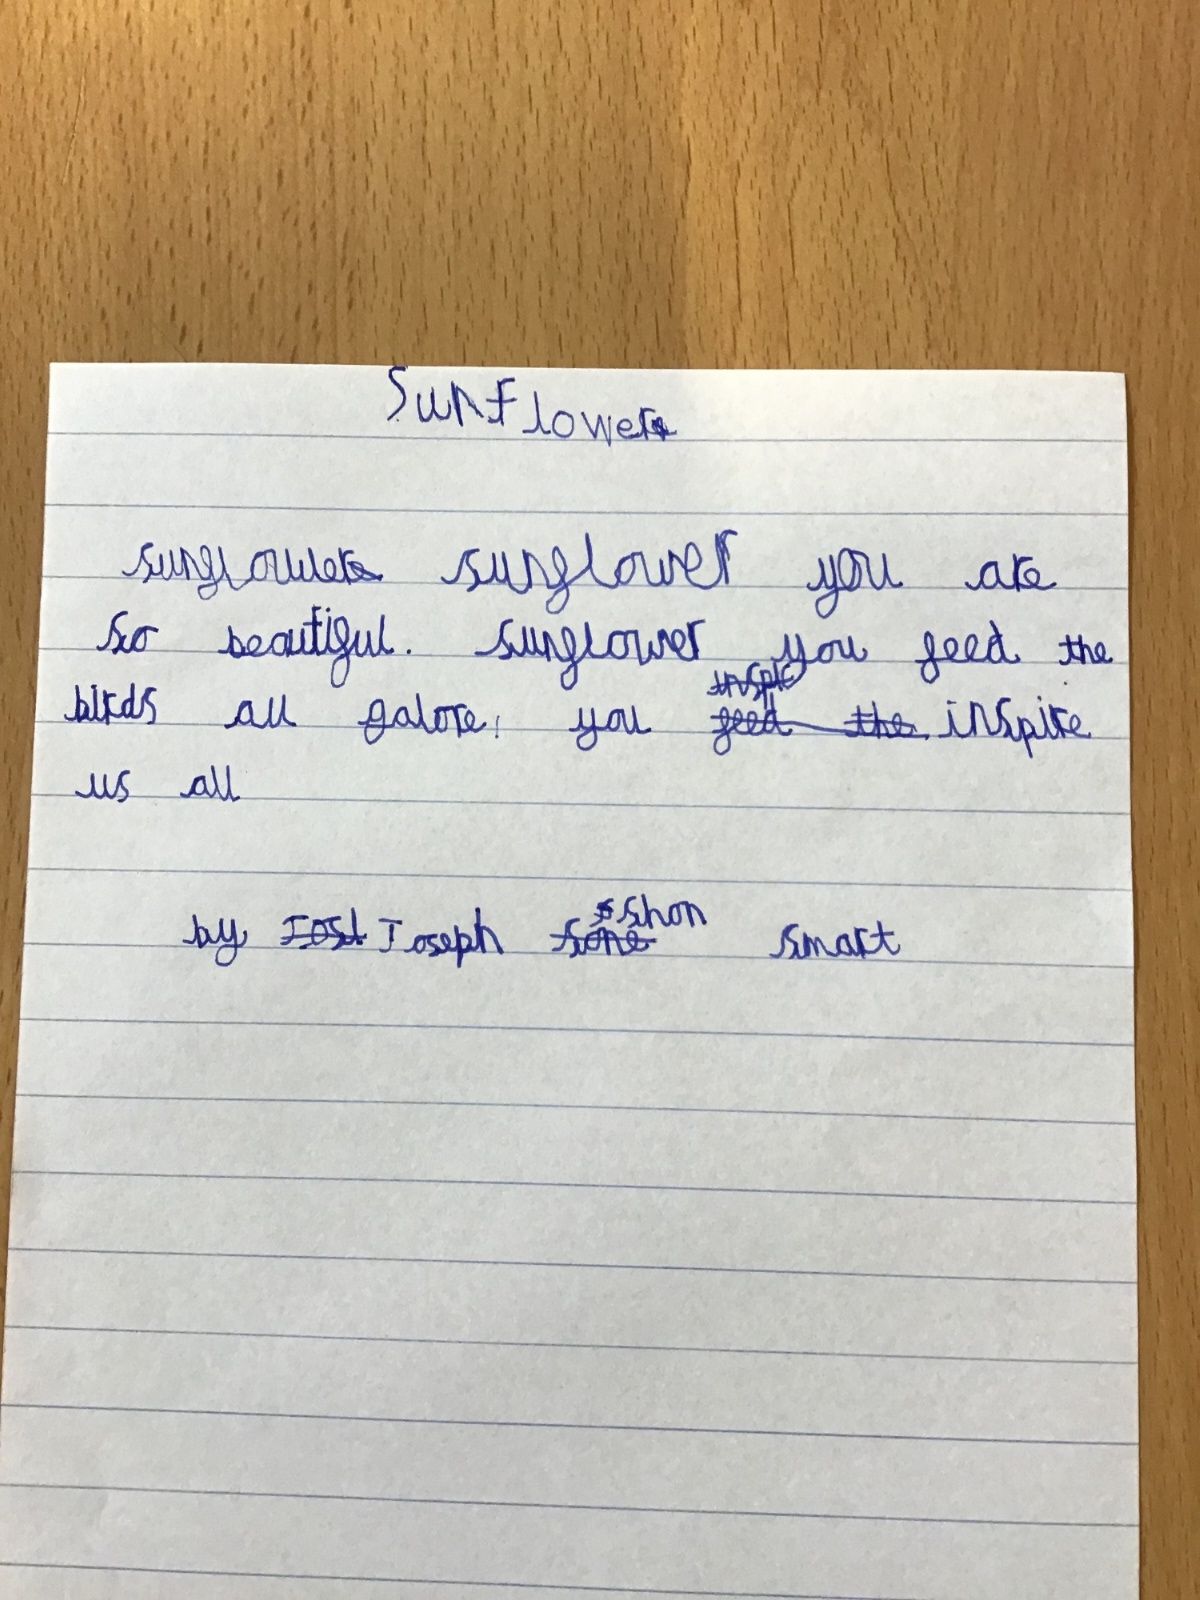 Sunflower
sunflower sunflower you are
so beautiful. sunflower you feed the
birds all galore, you inspire
us all
by Joseph Shon smart